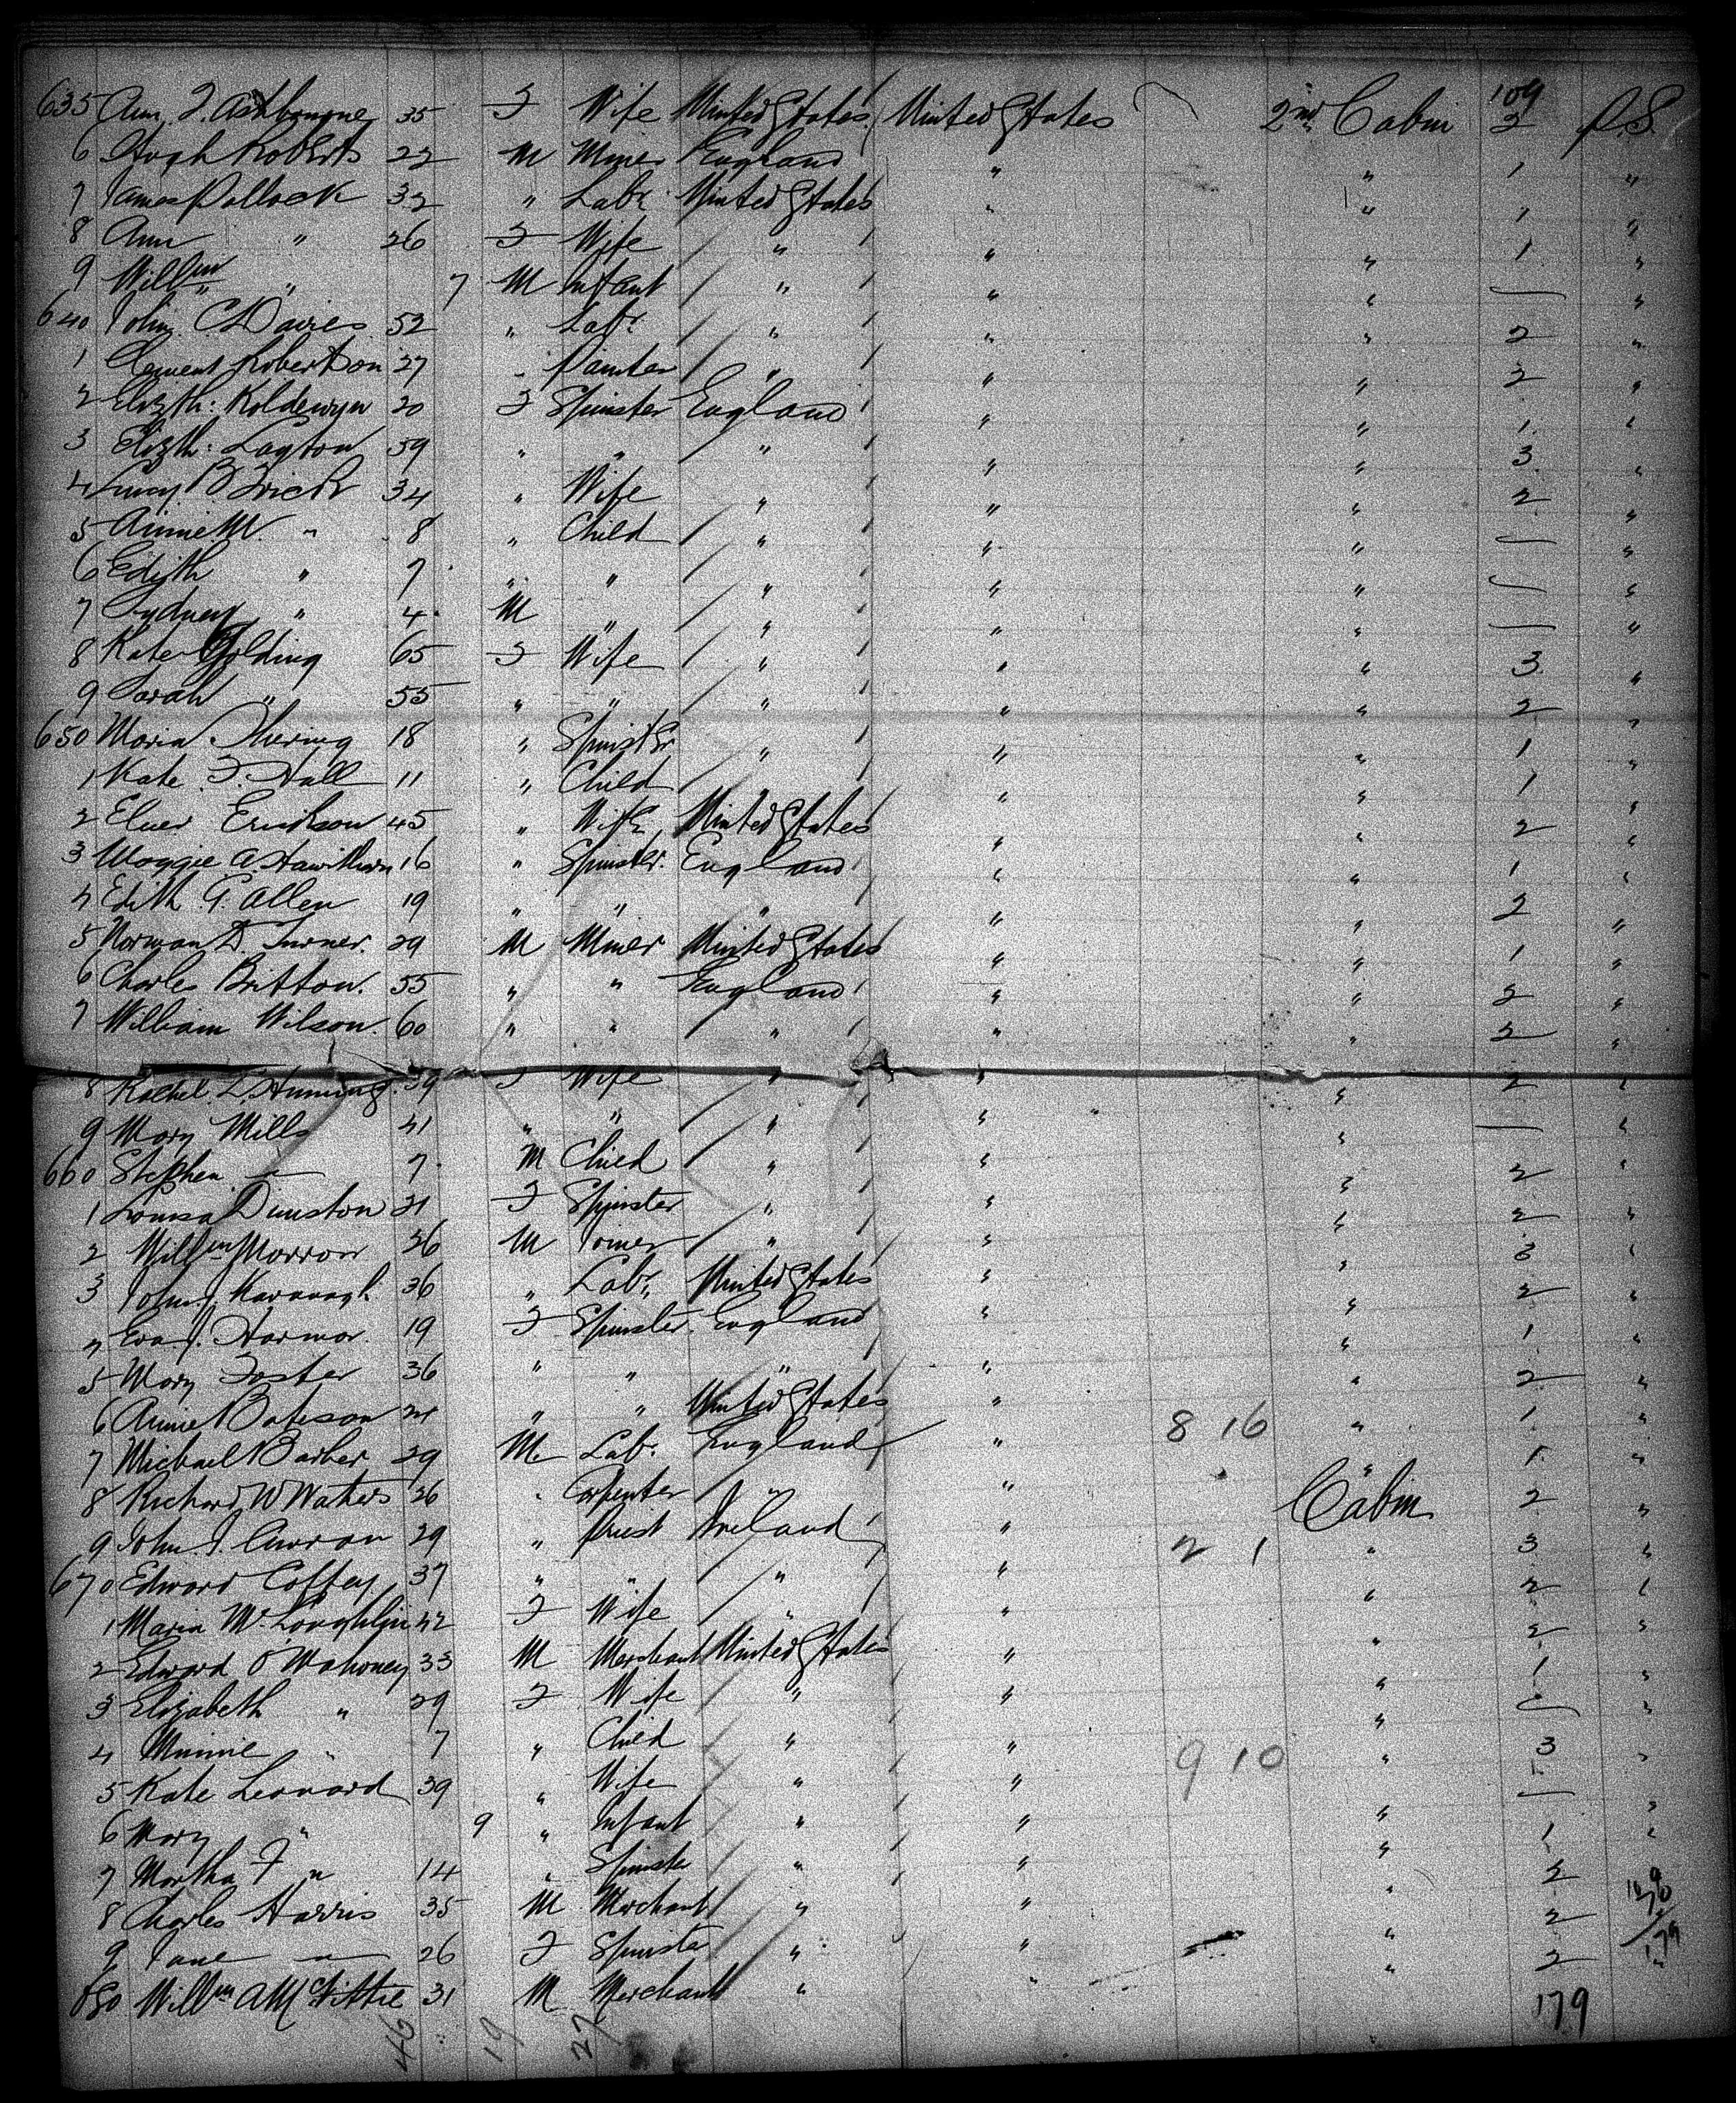 109
635 Ann J. Ashbourne 35 F Wife United States United States 2nd Cabin 2 P.S.
6 Hugh Roberts 22 M Miner England " " 1 "
7 James Pollock 32 " Labr United States " " 1 "
8 Ann " 26 F Wife " " " 1 "
9 Willm " 7 M Infant " " " — "
640 John C Davies 52 " Labr " " " 2 "
1 Clement Robertson 27 " Painter " " " 2 "
2 Elizth: Koldewyn 20 F Spinster England " " 1 "
3 Elizth: Layton 59 " " " " " 3 "
4 Lucy B Frick 34 " Wife " " " 2 "
5 Annie M. " 8 " Child " " " — "
6 Edith " 7 " " " " " — "
7 Sydney " 4 M " " " " — "
8 Kate Golding 65 F Wife " " " 3 "
9 Sarah " 55 " " " " " 2 "
650 Maria 18 " Spinster " " " 1 "
1 Kate F. Hall 11 " Child " " " 1 "
2 Erickson 45 " Wife United States " " 2 "
3 Maggie A. Hawthorn 16 " Spinster England " " 1 "
4 Edith G. Allen 19 " " " " " 2 "
5 Norman D. Turner 29 M Miner United States " " 1 "
6 Charles Britton. 55 " " England " " 2 "
7 William Wilson. 60 " " " " " 2 "
8 Rachel L. 39 F Wife " " " 2 "
9 Mary Mills 41 " " " " " — "
660 Stephen " 7 M Child " " " 2 "
1 Louisa Dunston 21 F Spinster " " " 2 "
2 Willm Morrow 26 M Joiner " " " 3 "
3 John J. Kavanagh 36 " Labr United States " " 2 "
4 Eva J. Harmor 19 F Spinster England " " 1 "
5 Mary Foster 36 " " " " " 2 "
6 Annie Bateson 24 " " United States " " 1 "
7 Michael Barber 29 M. Labr England " 8 16 " 1 "
8 Richard W Waters 26 " Carpenter " " Cabin 2 "
9 John J. Curran 29 " Priest Ireland " 2 1 " 3 "
670 Edward Coffey 37 " " " " " 2 "
1 Maria McLoughlin 42 F Wife " " " 2 "
2 Edward O'Mahoney 33 M Merchant United States " " 1 "
3 Elizabeth " 29 F Wife " " " — "
4 Minnie " 7 " Child " " 9 10 " 3 "
5 Kate Leonard 39 " Wife " " " — "
6 Mary " 9 " Infant " " " 1 "
7 Martha F " 14 " Spinster " " " 2 "
8 Charles Harris 35 M Merchant " " " 2
9 Jane " 26 F Spinster " " " 2 179
680 Willm A McVittie 31 M Merchant " "
179
46 19 27